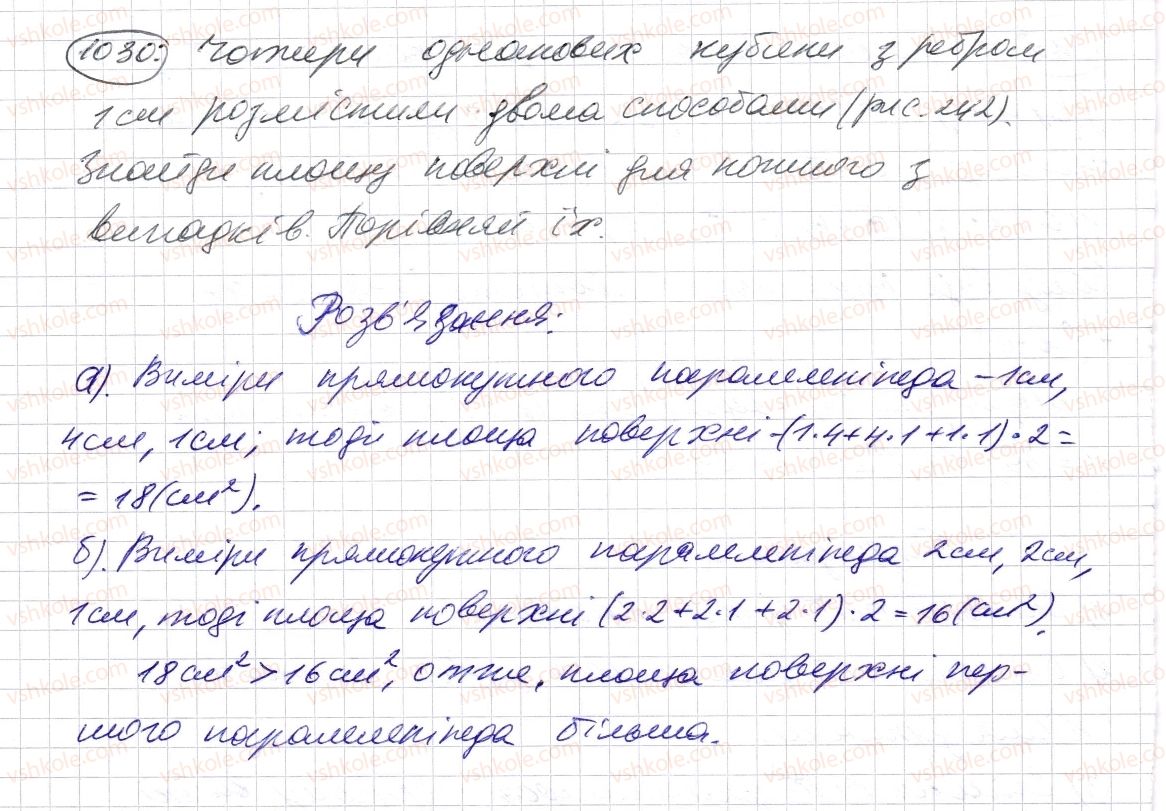 1030. Чотири однакових кубики з ребром
1см розмістили двома способами (рис. 242).
Знайди площу поверхні для кожного з
випадків. Порівняй їх.
Розв'язання:
а). Виміри прямокутного паралелепіпеда - 1см,
4см, 1см; тоді площа поверхні - (1·4+4·1+1·1)·2=
= 18(см²).
б). Виміри прямокутного паралелепіпеда 2см, 2см,
1см, тоді площа поверхні (2·2+2·1+2·1)·2=16(см²).
18см²>16см², отже, площа поверхні пер-
шого паралелепіпеда більша.